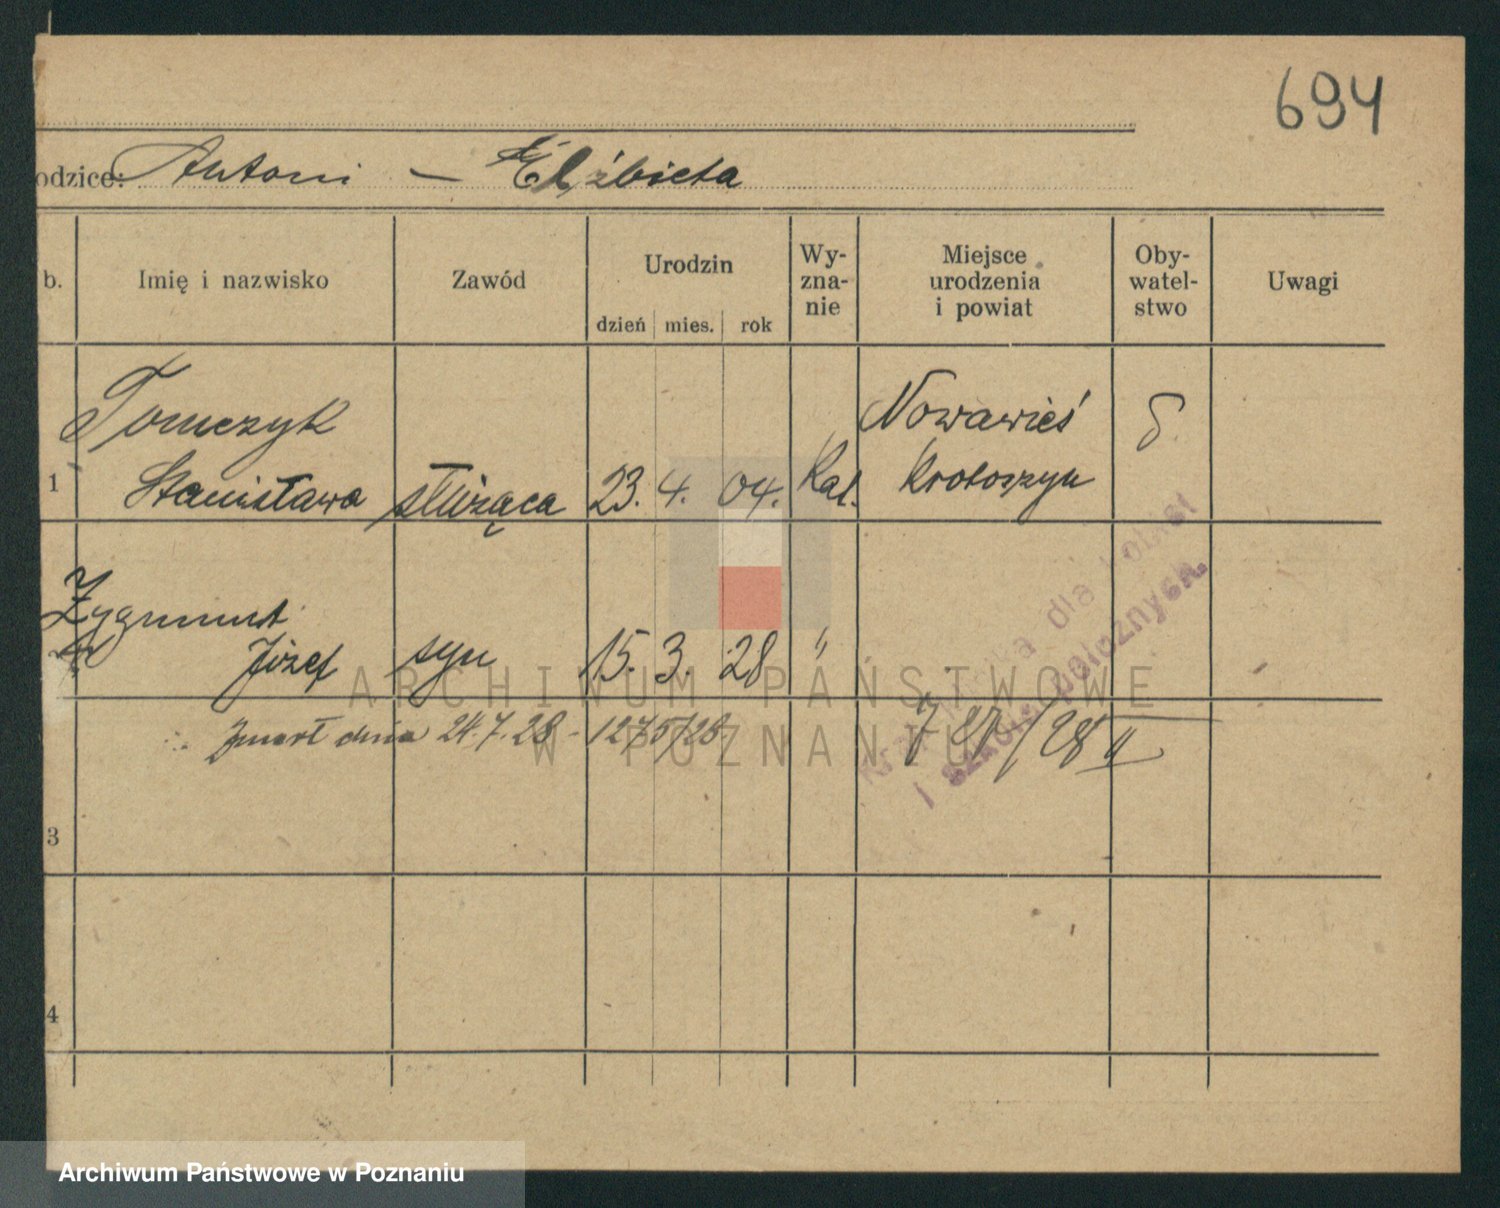 694
odzice: Antoni — Elżbieta
b. Imię i nazwisko Zawód Urodzin dzień mies. rok Wy-zna-nie Miejsce urodzenia i powiat Oby-watel-stwo Uwagi
Tomczyk Nowawieś
1 Stanisława służąca 23. 4. 04. Kat. Krotoszyn
Zygmunt
Józef syn 15. 3. 28 "
Zmarł dnia 24.7.28 - 1275/28
/28 II
3
4
dla
i społecznych.
ARCHIWUM PAŃSTWOWE
W POZNANIU
Archiwum Państwowe w Poznaniu